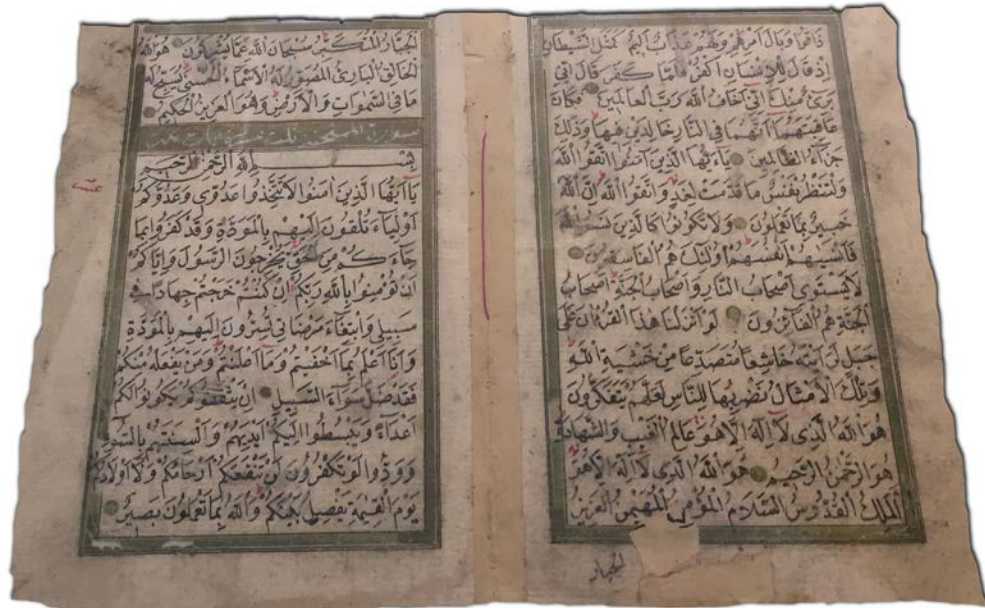 ذاقوا وبال امرهم ولهم عذاب اليم كمثل الشيطان
اذ قال للانسان اكفر فلما كفر قال اني
برئ منك اني اخاف الله رب العالمين فكان
عاقبتهما انهما في النار خالدين فيها وذلك
جزاء الظالمين يا ايها الذين آمنوا اتقوا الله
ولتنظر نفس ما قدمت لغد واتقوا الله ان الله
خبير بما تعملون ولا تكونوا كالذين نسوا الله
فانسيهم انفسهم اولئك هم الفاسقون
لا يستوي اصحاب النار واصحاب الجنة اصحاب
الجنة هم الفائزون لو انزلنا هذا القرءان على
جبل لرايته خاشعا متصدعا من خشية الله
وتلك الامثال نضربها للناس لعلهم يتفكرون
هو الله الذي لا اله الا هو عالم الغيب والشهادة
هو الرحمن الرحيم هو الله الذي لا اله الا هو
الملك القدوس السلام المؤمن المهيمن العزيز
الجبار
الجبار المتكبر سبحان الله عما يشركون هو الله
الخالق البارئ المصور له الاسماء الحسنى يسبح له
ما في السموات والارض وهو العزيز الحكيم
سورة الممتحنة
بسم الله الرحمن الرحيم
يا ايها الذين امنوا لا تتخذوا عدوي وعدوكم
اولياء تلقون اليهم بالمودة وقد كفروا بما
جاءكم من الحق يخرجون الرسول واياكم
ان تؤمنوا بالله ربكم ان كنتم خرجتم جهادا في
سبيلي وابتغاء مرضاتي تسرون اليهم بالمودة
وانا اعلم بما اخفيتم وما اعلنتم ومن يفعله منكم
فقد ضل سواء السبيل ان يثقفوكم يكونوا لكم
اعداء ويبسطوا اليكم ايديهم والسنتهم بالسوء
وودوا لو تكفرون لن تنفعكم ارحامكم ولا اولادكم
يوم القيمة يفصل بينكم والله بما تعملون بصير